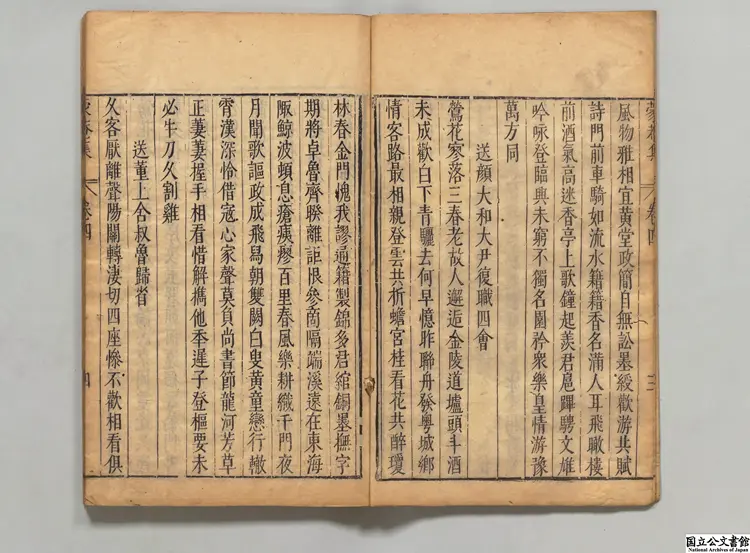 風物雅相宜黃堂政簡自無訟墨綬歡游共賦
詩門前車騎如流水籍籍香名滿人耳飛瞰樓
前酒氣高迷香亭上歌鐘起羨君扈蹕騁文雄
吟咏登臨興未窮不獨名園矜衆樂皇情游豫
萬方同
送顏大和大尹復職四會
鶯花寥落三春老故人邂逅金陵道壚頭斗酒
未成歡白下青驪去何早憶昨聯舟發粵城鄉
情客路最相親登雲共折蟾宮桂看花共醉瓊
卷四
三
林春金門愧我謬通籍製錦多君綰銅墨撫字
期將卓魯齊暌離詎恨參商隔端溪遠在東海
陬鯨波頓息瘡痍瘳百里春風樂耕織千門夜
月聞歌謳政成飛舄朝雙闕白叟黃童戀行轍
霄漢深怜借寇心家聲莫負尚書節龍河芳草
正萋萋握手相看惜解攜他奉遲子登樞要未
必牛刀久割雞
送董上舍叔魯歸省
久客厭離聲陽關轉淒切四座慘不歡相看俱
卷四
四
国立公文書館
National Archives of Japan